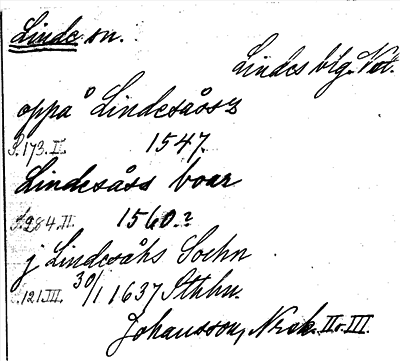 Linde sn.
Lindes blg. Vstl.
oppå Lindesååsz
S. 173. II. 1547.
Lindesåss boar
S. 284. II. 1560.?
j Lindesåhs Sochn
s. 121. III. 30/1 1637 Sthlm.
Johansson, Norsk. II o. III.